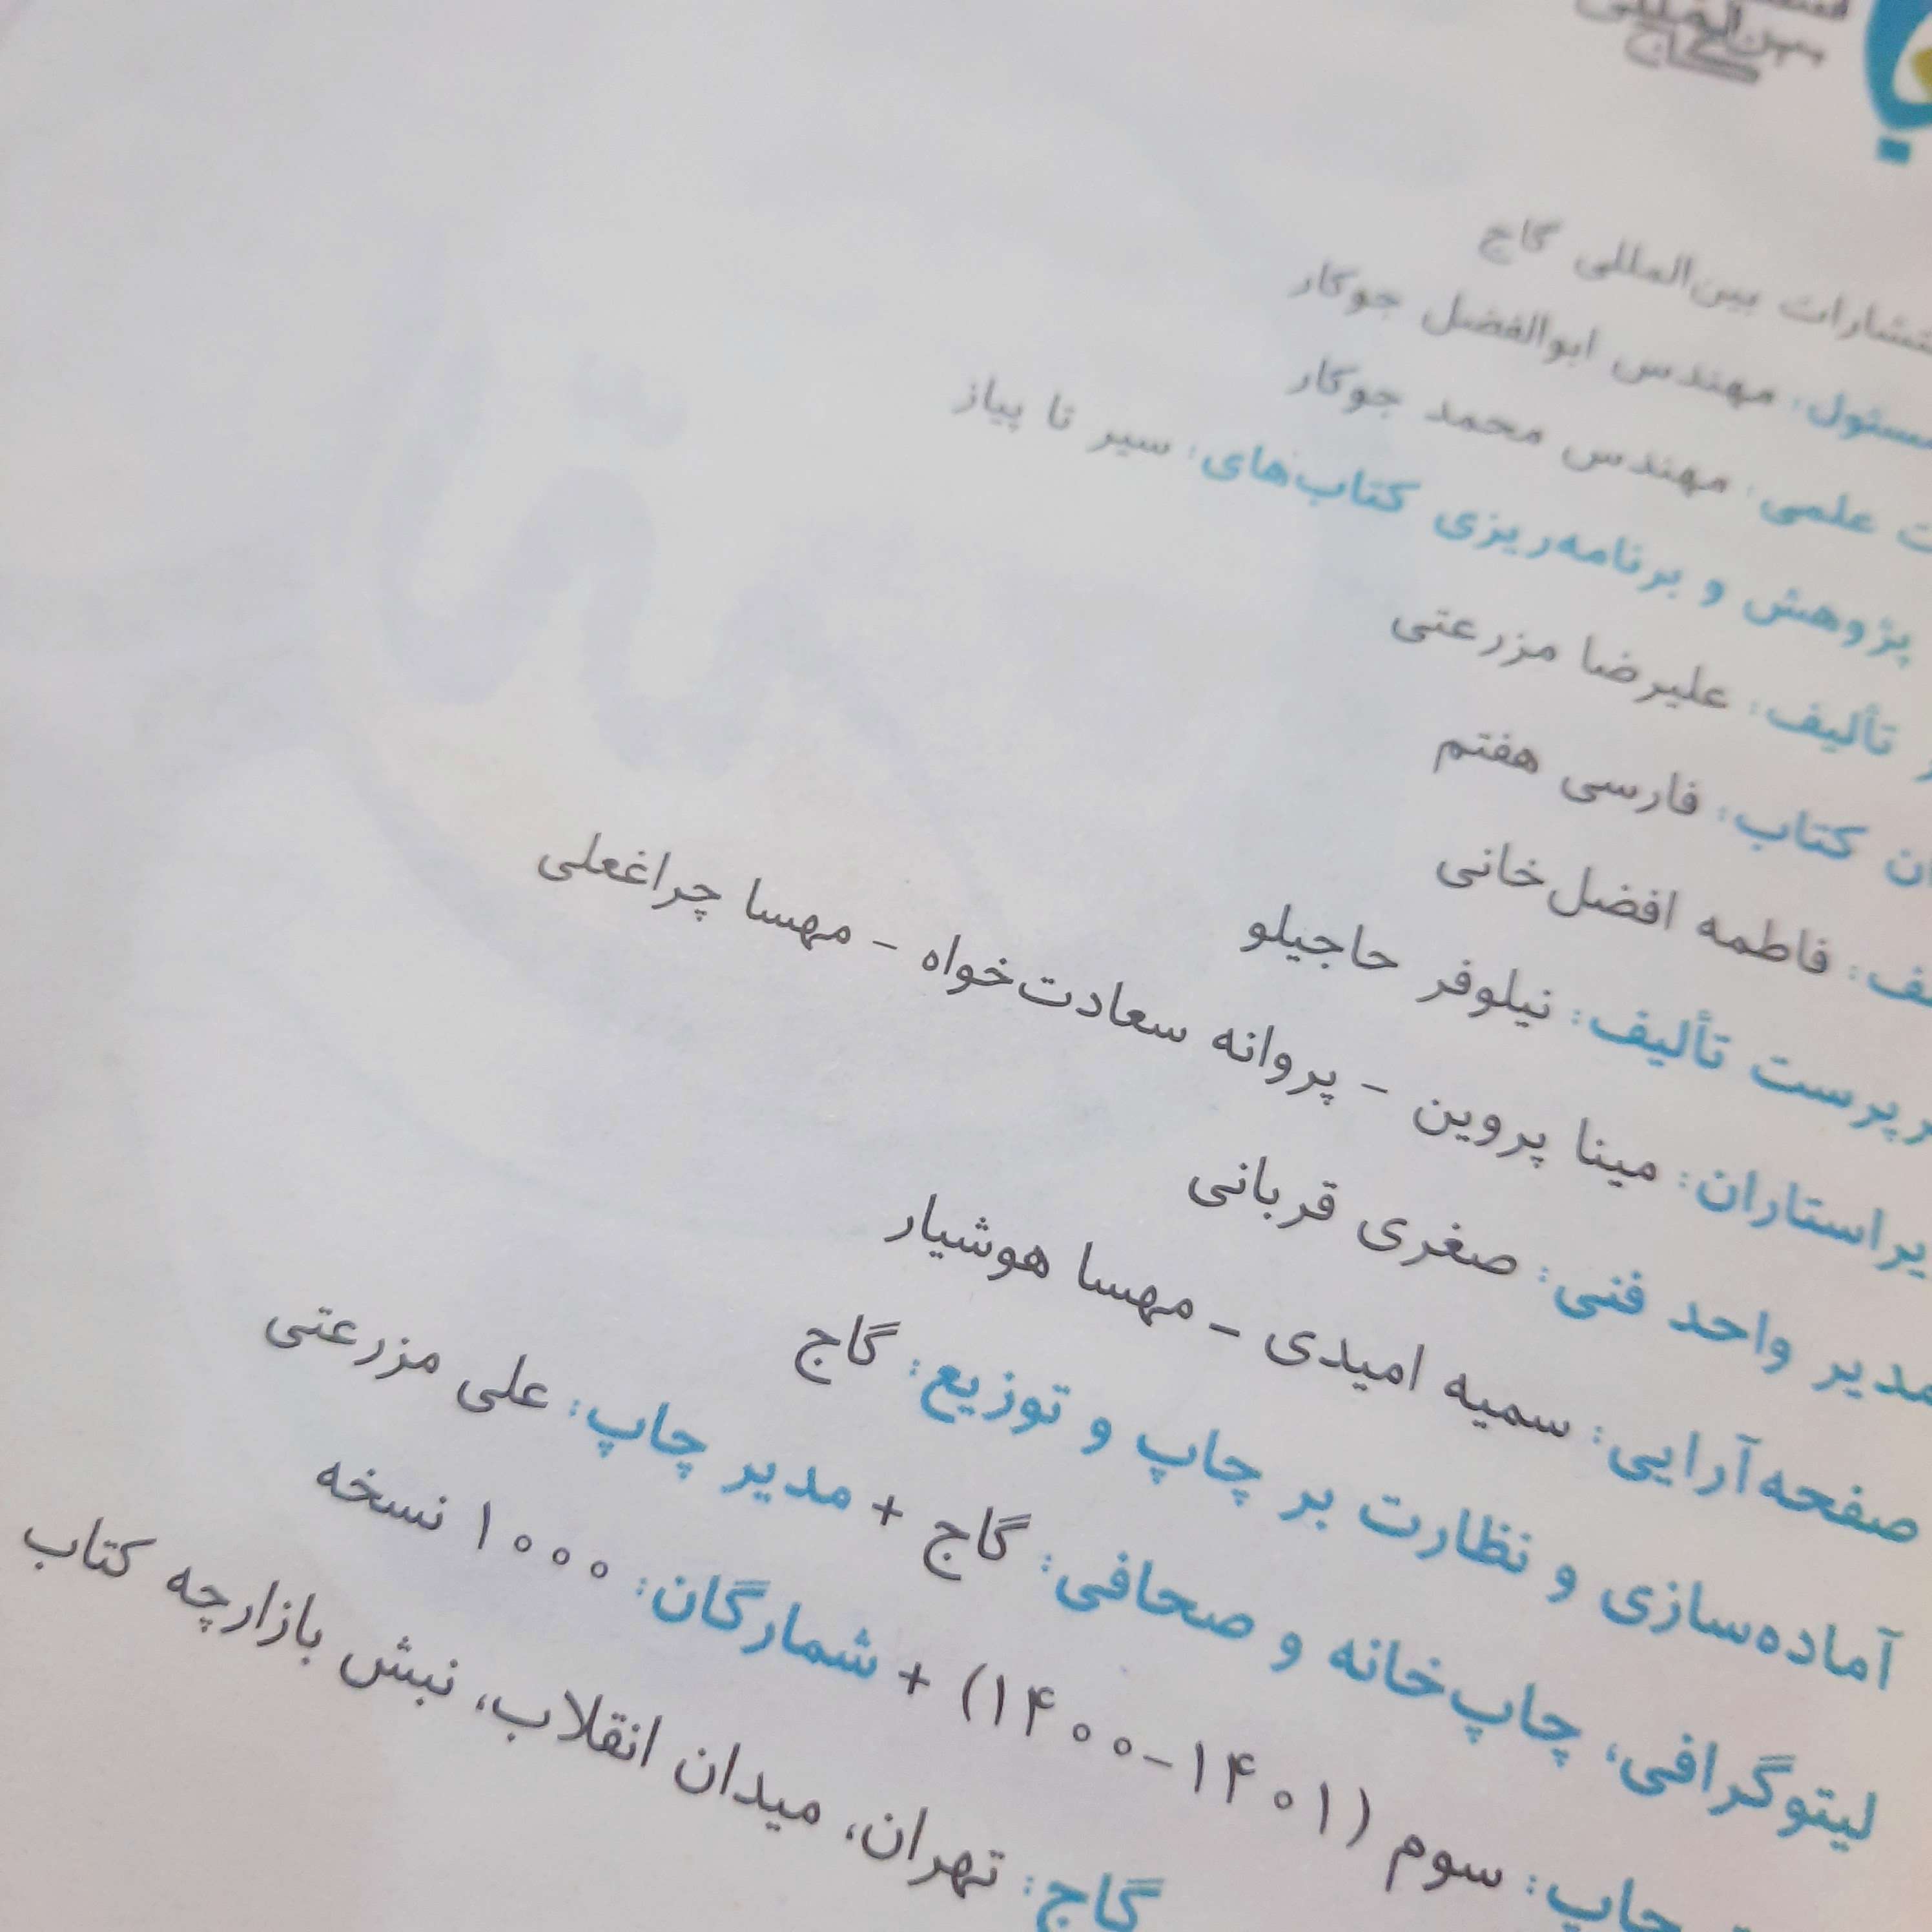 بین‌المللی
گاج
بین‌المللی گاج
مهندس ابوالفضل جوکار
علمی: مهندس محمد جوکار
پژوهش و برنامه‌ریزی کتاب‌های: سیر تا پیاز
تألیف: علیرضا مزرعتی
کتاب: فارسی هفتم
فاطمه افضل‌خانی
تألیف: نیلوفر حاجیلو
مینا پروین - پروانه سعادت‌خواه - مهسا چراغعلی
واحد فنی: صغری قربانی
صفحه‌آرایی: سمیه امیدی - مهسا هوشیار
آماده‌سازی و نظارت بر چاپ و توزیع: گاج
لیتوگرافی، چاپ‌خانه و صحافی: گاج + مدیر چاپ: علی مزرعتی
چاپ: سوم (۱۴۰۱-۱۴۰۰) + شمارگان: ۱۰۰۰ نسخه
گاج: تهران، میدان انقلاب، نبش بازارچه کتاب